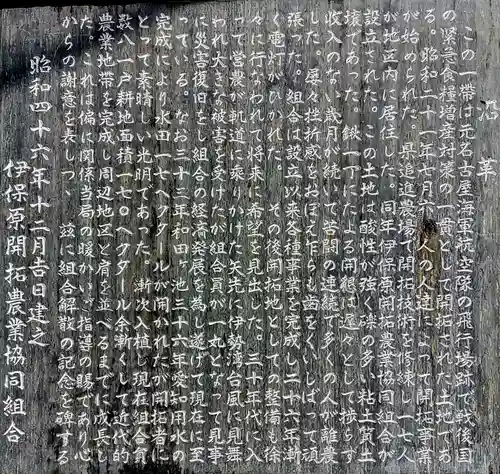 沿革
この一帯は元名古屋海軍航空隊の飛行場跡で戦後国
の緊急食糧増産対策の一貫として開拓された土地であ
る。昭和二十一年七月六十人の人達によって開拓事業
が始められた。県追進農場で開拓技術を修練し一七人
が地区内に居住した。同年伊保原開拓農業協同組合が
設立された。この土地は酸性が強く礫の多い粘土質土
壌であった。鍬一丁による開墾は遅々として捗らず
収入のない歳月が続いて苦闘の連続で多くの人が離農
した。屡々挫折感をおぼえ乍らも歯をくいしばって頑
張った。組合は設立以来各種事業を完成し二十六年漸
く電灯がひかれた。その後開拓地としての整備も徐
々に行なわれて将来に希望を見出した。三十年代に入
って営農が軌道に乗りかけた矢先に伊勢湾台風に見舞
われ大きな被害を受けたが組合員が一丸となって見事
に災害復旧をし組合の経済発展を為し遂げ現在に至
っている。なお三十三年和田ヶ池三十六年愛知用水の
完成により水田一七ヘクタールが開かれたが開拓者に
とって素晴しい光明であった。漸次入植し現在組合員
数八一戸耕地面積一七〇ヘクタール余漸くして近代的
農業地帯を完成し周辺地区と肩を並べるまでに成長し
た。これは偏に関係当局の暖かいご指導の賜であり心
からの謝意を表しつゝ茲に組合解散の記念を碑する
昭和四十六年十二月吉日建之
伊保原開拓農業協同組合